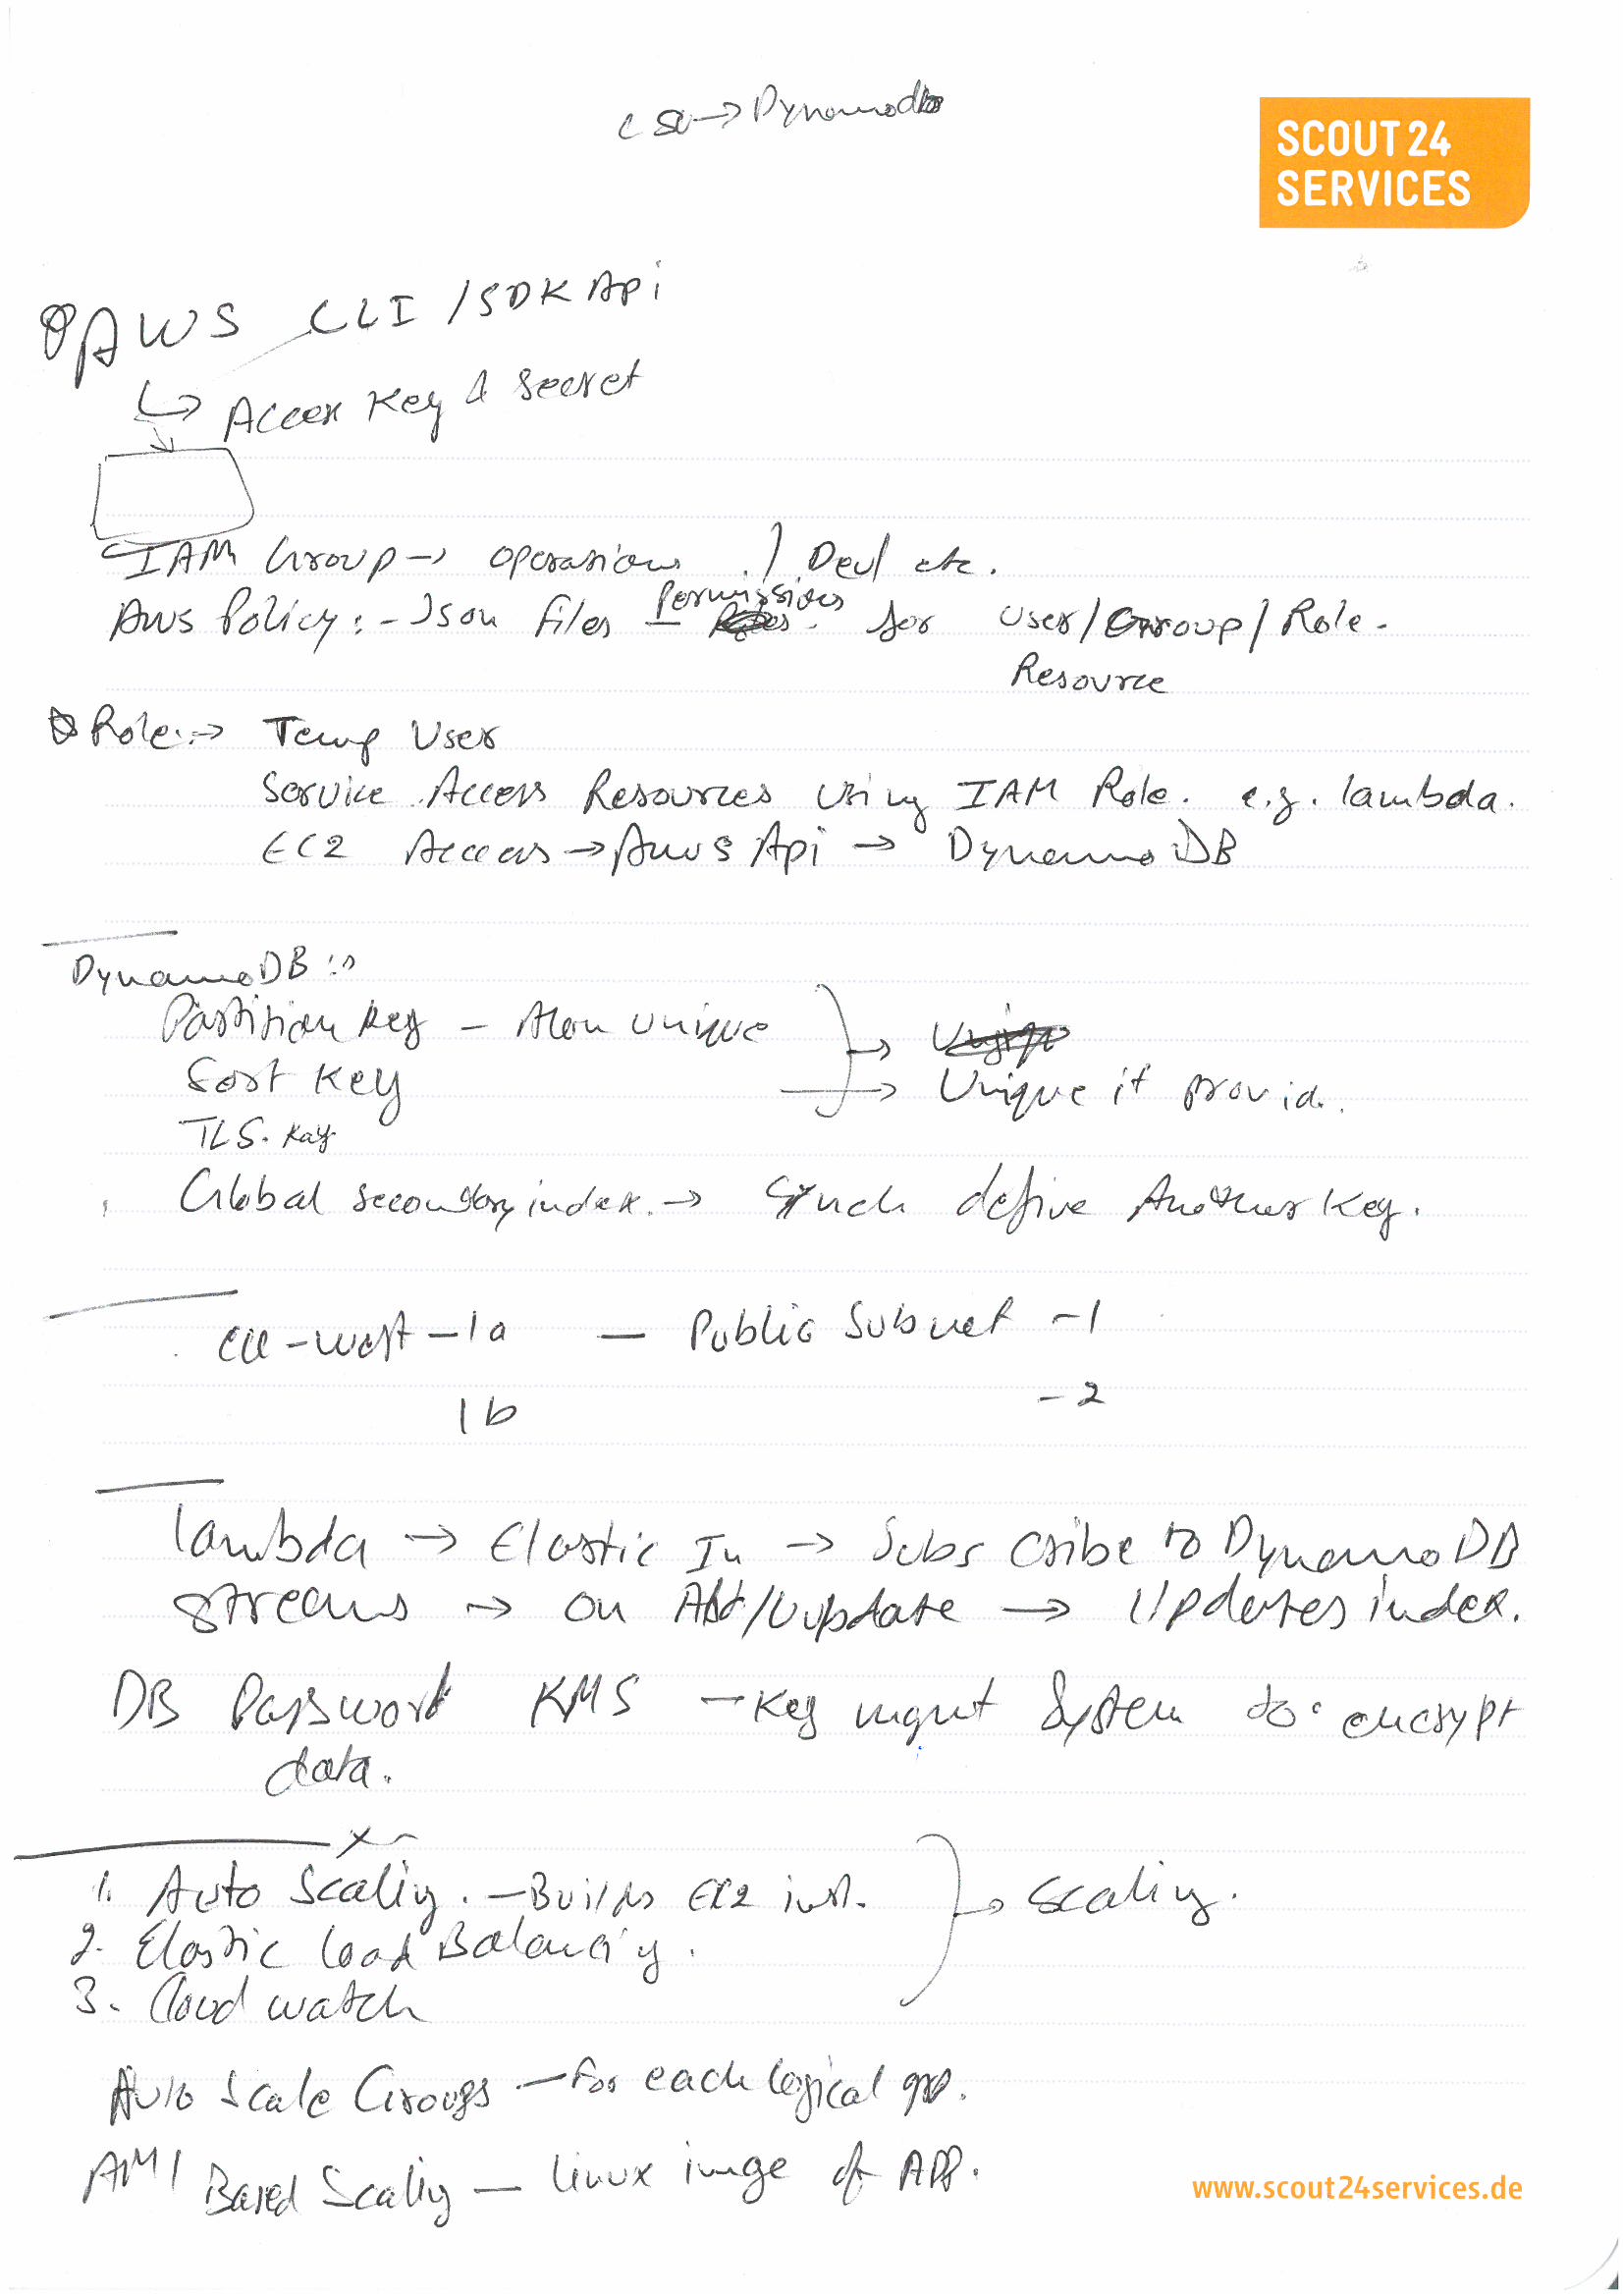 → Dynamodb
SCOUT 24
SERVICES
AWS CLI / SDK Api
↳ Access Key & Secret
IAM Group → Operations / Dev/ etc.
Permissions
AWS Policy :- Json files – for User/Group/Role.
Resource
Role :→ Temp User
Service Access Resources using IAM Role. e.g. lambda.
EC2 Access → Aws Api → DynamoDB
DynamoDB :→
Partition key – Alon unique
Sort Key → Unique if provid.
TLS. Key
Global secondary index. → define Another Key.
eu-west-1a — Public Subnet -1
1b -2
lambda → Elastic In → Subscribe to DynamoDB
streams → on Add/Update → Updates index.
DB Password KMS – Key mgmt System to encrypt
data.
1. Auto Scaling. – Builds EC2 inst. → Scaling.
2. Elastic load Balancing.
3. Cloud watch
Auto Scale Groups – For each logical grp.
AMI Based Scaling – linux image of APP.
www.scout24services.de